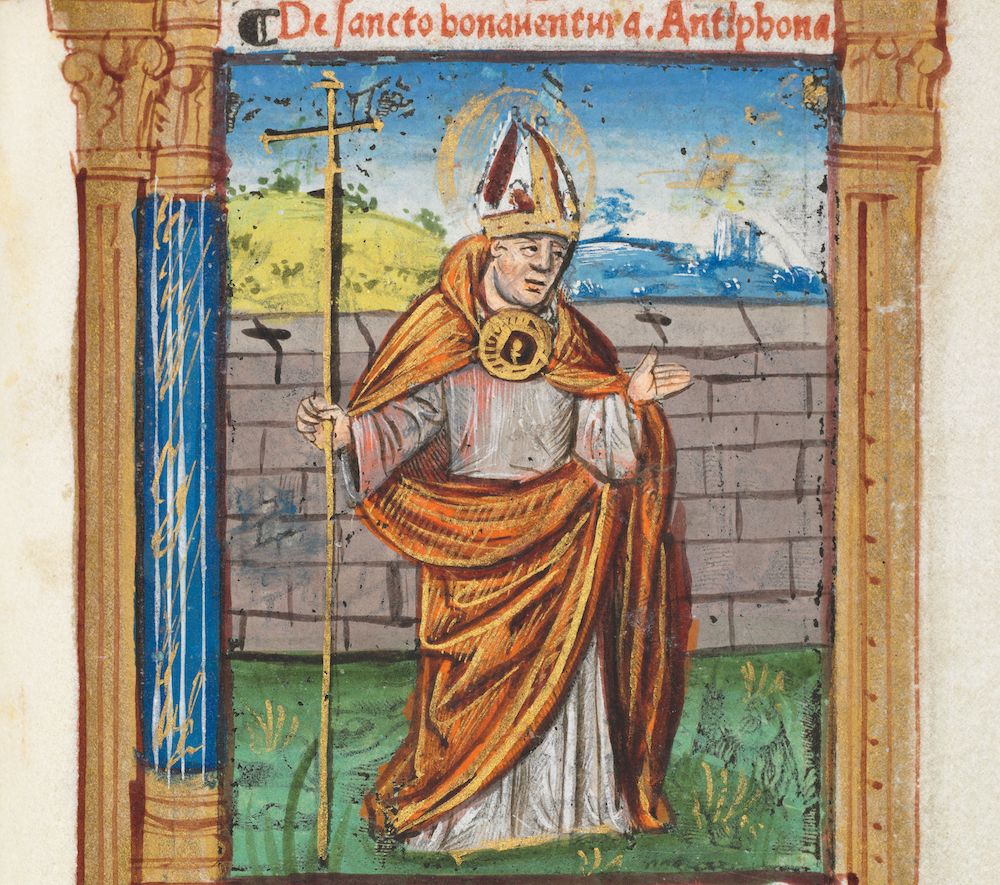 De sancto bonaventura. Antiphona.